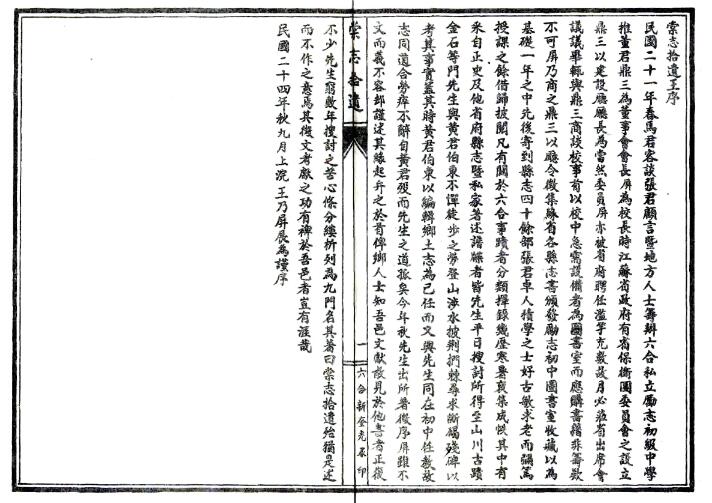 棠志拾遺王序
民國二十一年春馬君容談張君顧言暨地方人士籌辦六合私立勵志初級中學
推董君鼎三為董事會會長屏為校長時江蘇省政府有省保衞團委員會之設立
鼎三以建設廳廳長為當然委員屏亦被省府聘任濫竽充數歲月必蒞省出席會
議議畢輒與鼎三商談校事首以校中急需設備者為圖書室而應購書籍非籌欵
不可屏乃商之鼎三以廳令徵集蘇省各縣志書頒發勵志初中圖書室收藏以為
基礎一年之中先後寄到縣志四十餘部張君卓人積學之士好古敏求老而彌篤
授課之餘借歸披閱凡有關於六合事蹟者分類擇錄幾歷寒暑裒集成帙其中有
采自正史及他省府縣志暨私家著述譜牒者皆先生平日搜討所得至山川古蹟
金石等門先生與黃君伯東不憚徒步之勞登山涉水披荆捫棘尋求斷碣殘碑以
考其事實蓋其時黃君伯東以編輯鄉土志為己任而又與先生同在初中任教故
志同道合勞瘁不辭自黃君歿而先生之道孤矣今年秋先生出所著徵序屏雖不
文而義不容辭謹述其緣起弁之於首俾鄉人士知吾邑文獻散見於他書者正復
棠志拾遺
一
六合新金光石印
不少先生窮數年搜討之苦心條分縷析列為九門名其著曰棠志拾遺殆猶是述
而不作之意焉其徵文考獻之功有裨於吾邑者豈有涯哉
民國二十四年秋九月上浣王乃屏展為謹序